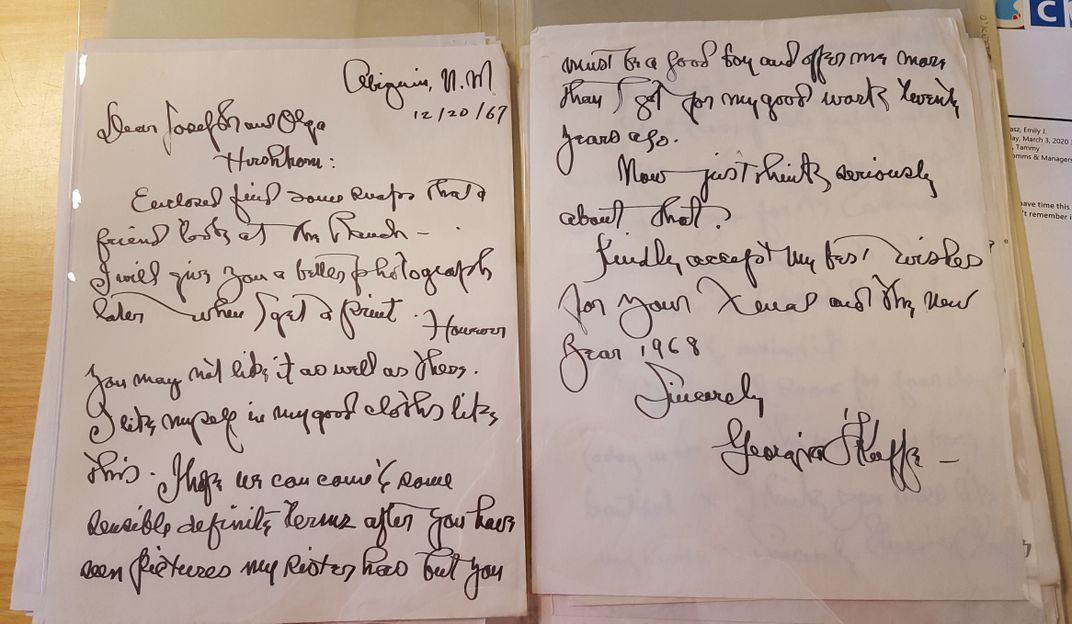 Abiquiu, N.M.
12/20/67
Dear Joseph and Olga
Hirshhorn:
Enclosed find some snaps that a
friend took at the Ranch –
I will give you a better photograph
later when I get a print. However
you may not like it as well as these.
I like myself in my good cloths like
this. I hope we can come to some
sensible definite terms after you have
seen pictures my sister has but you
must be a good boy and offer me more
than I get for my good work twenty
years ago.
Now just think seriously
about that?
Kindly accept my best wishes
for your Xmas and the New
Year 1968
Sincerely
Georgia O'Keeffe –
asz, Emily J.
ay, March 3, 2020
, Tammy
omms & Managers
have time this
't remember i